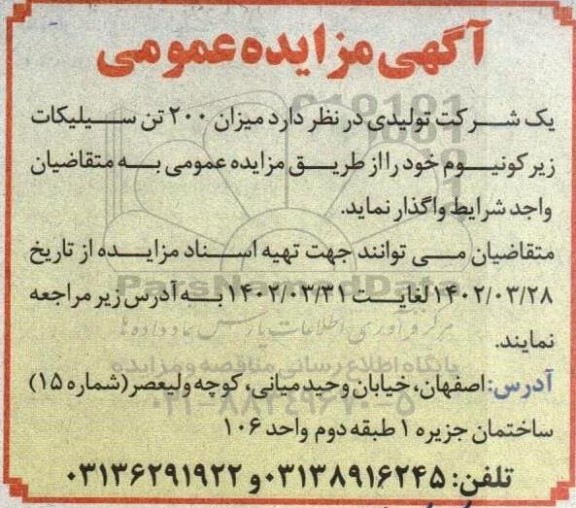 آگهی مزایده عمومی
یک شرکت تولیدی در نظر دارد میزان ۲۰۰ تن سیلیکات
زیرکونیوم خود را از طریق مزایده عمومی به متقاضیان
واجد شرایط واگذار نماید.
متقاضیان می توانند جهت تهیه اسناد مزایده از تاریخ
۱۴۰۲/۰۳/۲۸ لغایت ۱۴۰۲/۰۳/۳۱ به آدرس زیر مراجعه
نمایند.
ParsNamadData
مرکز فرآوری اطلاعات پارس نماد داده ها
پایگاه اطلاع رسانی مناقصه و مزایده
آدرس: اصفهان، خیابان وحید میانی، کوچه ولیعصر (شماره ۱۵)
۰۲۱-۸۸۳۴۹۶۷۰-۵
ساختمان جزیره ۱ طبقه دوم واحد ۱۰۶
تلفن: ۰۳۱۳۸۹۱۶۲۴۵ و ۰۳۱۳۶۲۹۱۹۲۲